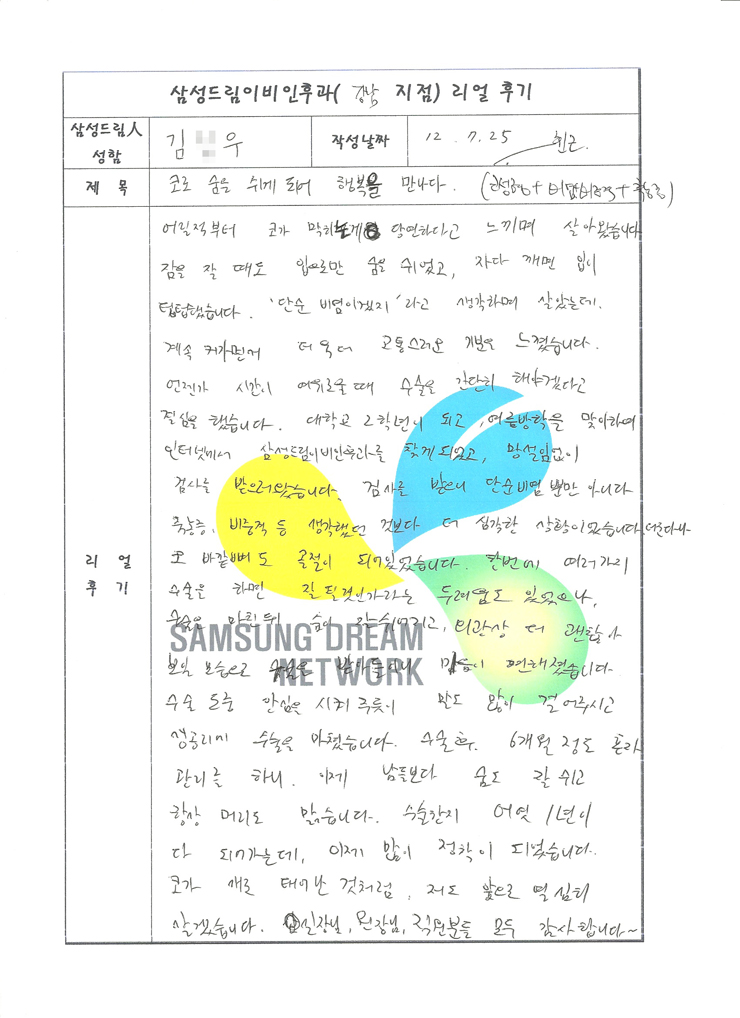 삼성드림이비인후과( 강남 지점) 리얼 후기
삼성드림人 성함
김 우
작성날짜
12. 7. 25
최근
제 목
코로 숨을 쉬게 되어 행복을 만나다.
어릴적부터 코가 막히는게 당연하다고 느끼며 살아왔습니다
잠을 잘 때도 입으로만 숨을 쉬었고, 자다 깨면 입이
텁텁했습니다. '단순 비염이겠지' 라고 생각하며 살았는데.
계속 커가면서 더욱더 고통스러운 기분을 느꼈습니다.
언젠가 시간이 여유로울때 수술을 간단히 해야겠다고
결심을 했습니다. 대학교 2학년이 되고, 여름방학을 맞이하여
인터넷에서 삼성드림이비인후과를 찾게되었고, 망설임없이
검사를 받으러왔습니다. 검사를 받으니 단순비염 뿐만 아니라
축농증, 비중격 등 생각했던 것보다 더 심각한 상황이었습니다.
코 바깥뼈도 골절이 되어있었습니다. 한번에 여러가지
수술을 하면 잘 될것인가라는 두려움도 있었으나,
수술을 마친뒤 숨이 잘쉬어지고, 외관상 더 괜찮아
보일 모습으로 마음이 편해졌습니다.
수술 도중 안심을 시켜 주듯이 말도 많이 걸어주시고
수술을 마쳤습니다. 수술후, 6개월 정도
관리를 하니. 이제 남들보다 숨도 잘 쉬고
항상 머리도 맑습니다. 수술한지 어엿 1년이
다 되어가는데, 이제 많이 정착이 되었습니다.
코가 새로 태어난 것처럼, 저도 앞으로 열심히
살겠습니다. 실장님, 원장님, 직원분들 모두 감사합니다~
리 얼 후 기
SAMSUNG DREAM
NETWORK